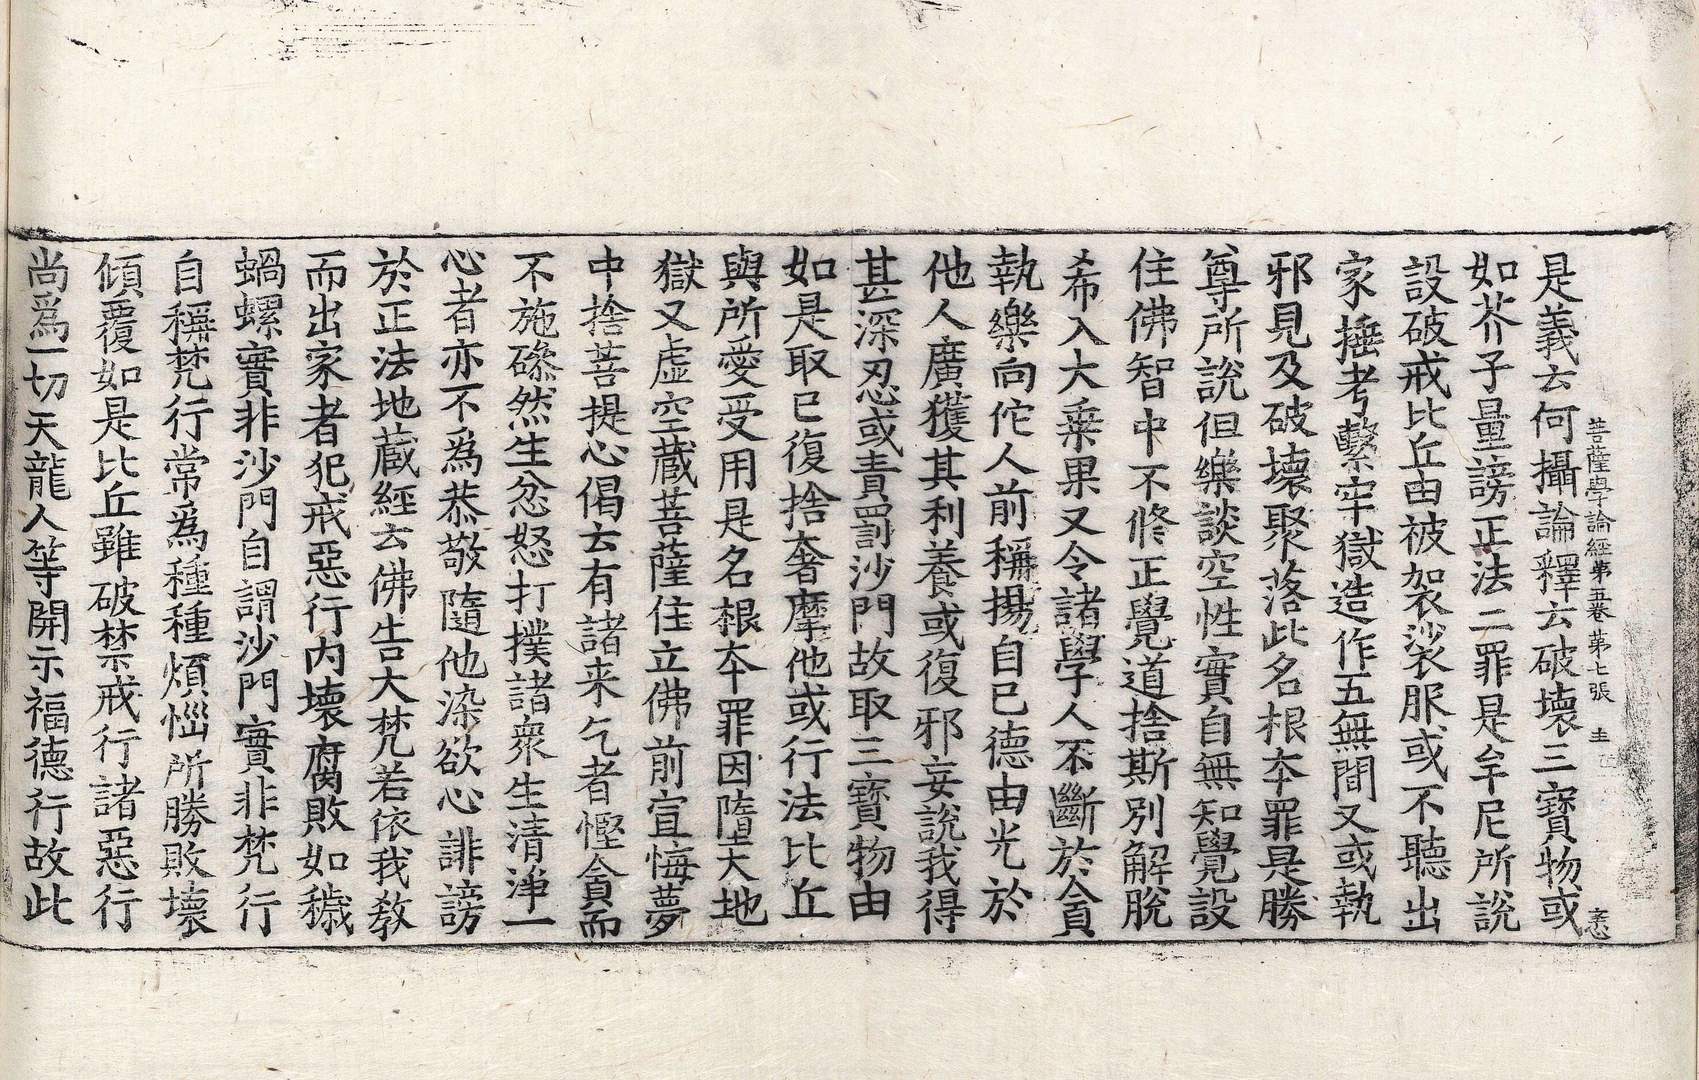 菩薩學論經第五卷 第七張 圭
是義云何攝論釋云破壞三寶物或
如芥子量謗正法二罪是牟尼所說
設破戒比丘由被袈裟服或不聽出
家捶考繫牢獄造作五無間又或執
邪見及破壞聚落此名根本罪是勝
尊所說但樂談空性實自無知覺設
住佛智中不修正覺道捨斯別解脫
希入大乗果又令諸學人不斷於貪
執樂向佗人前稱揚自已德由光於
他人廣獲其利養或復邪妄說我得
甚深忍或責罰沙門故取三寶物由
如是取已復捨奢摩他或行法比丘
與所愛受用是名根本罪因墮大地
獄又虛空藏菩薩住立佛前宣悔夢
中捨菩提心偈云有諸来乞者慳貪而
不施磣然生忿怒打撲諸衆生清淨一
心者亦不為恭敬隨他染欲心誹謗
於正法地蔵經云佛告大梵若依我教
而出家者犯戒惡行内壞腐敗如穢
蝸螺實非沙門自謂沙門實非梵行
自稱梵行常爲種種煩惱所勝敗壞
傾覆如是比丘雖破禁戒行諸惡行
尚爲一切天龍人等開示福德行故此